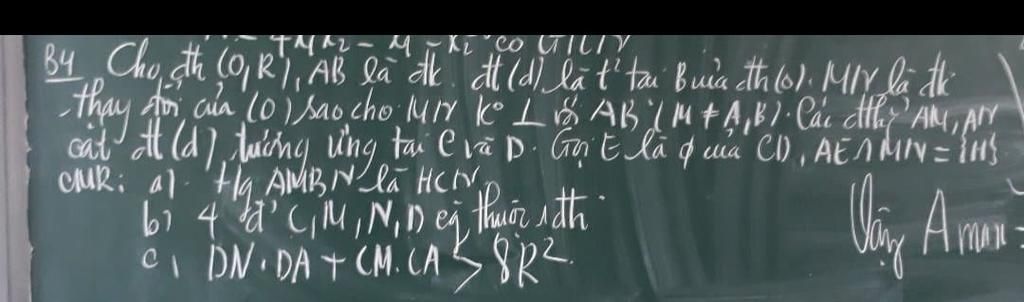 B4 Cho đth (O,R), AB là đk đt (d) là t² tại B của đth (O). MN là đk
thay đổi của (O) sao cho MN k° ⊥ AB (M ≠ A,B). Các đth² AM, AN
cắt đt (d) tương ứng tại C và D. Gọi E là φ của CD, AE ∩ MN = {H}
CMR: a) t/g AMBN là HCN
b) 4 đ' C, M, N, D cg thuộc 1 đth
c, DN.DA + CM.CA > 8R².
Vậy A max =